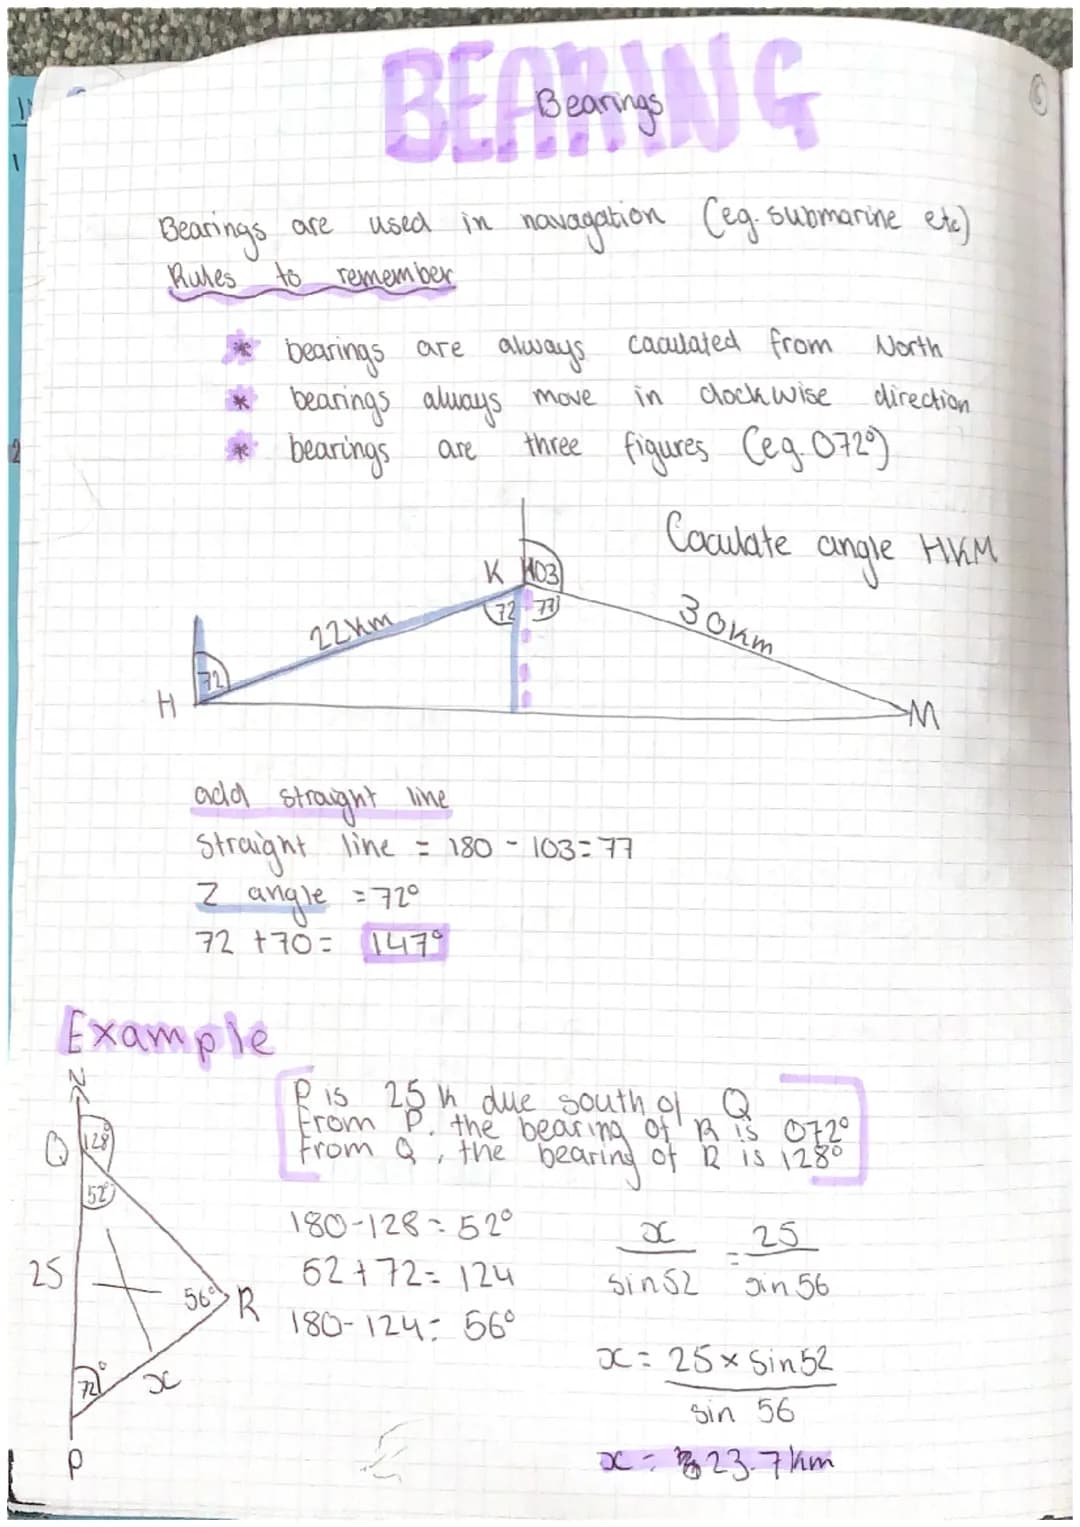 BEARING
Bearings
Bearings are used in navagation (eg. submarine etc)
Rules to remember
* bearings are always caculated from North
* bearings always move in clockwise direction
* bearings are three figures (eg. 072°)
Caculate angle HKM
K 103
72 77
22km
30km
72
H
M
add straight line
straight line = 180 - 103 = 77
Z angle = 72°
72 + 70 = 147°
Example
N
P is 25 k due south of Q
From P, the bearing of R is 072°
From Q, the bearing of R is 128°
Q 128°
52°
25
56° R
72° x
P
180-128 = 52°
52 + 72 = 124
180-124 = 56°
x = 25
sin52 sin56
x = 25 x sin52
sin 56
x = 23.7km